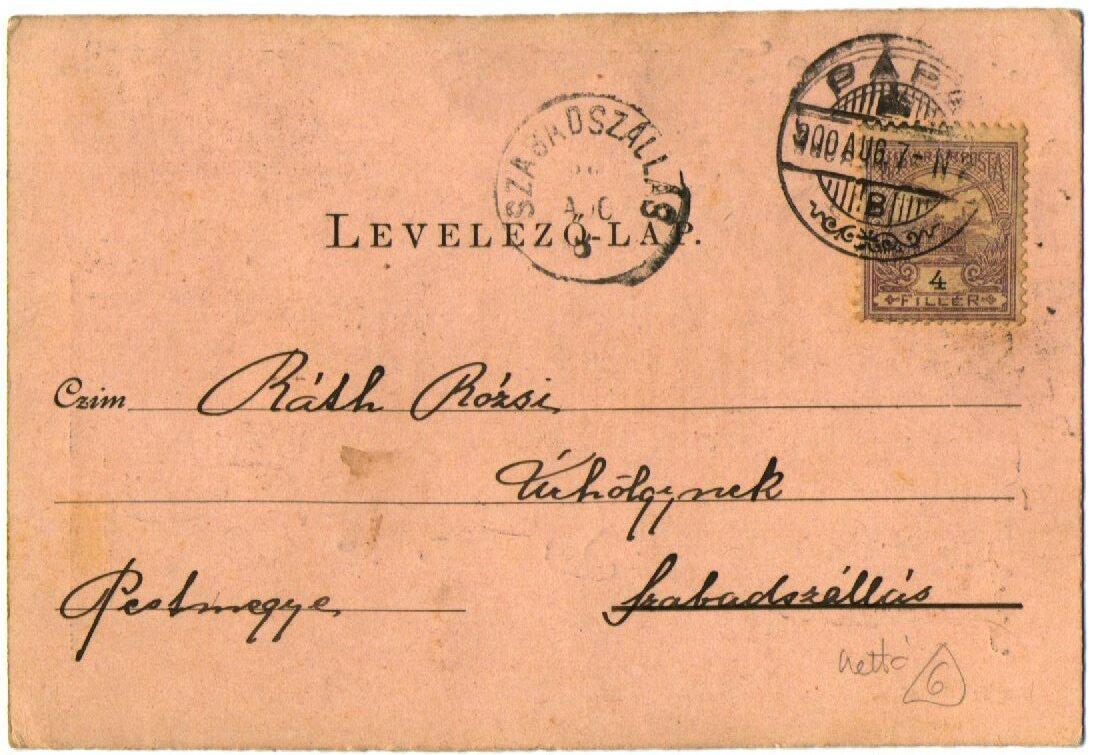 PÁPA
900 AUG. 7 - N
B
MAGYAR KIR. POSTA
4
FILLÉR
SZABADSZÁLLÁS
AUG
8
LEVELEZŐ-LAP.
Czim Ráth Rózsi
Úrhölgynek
Pestmegye
Szabadszállás
nettó 6